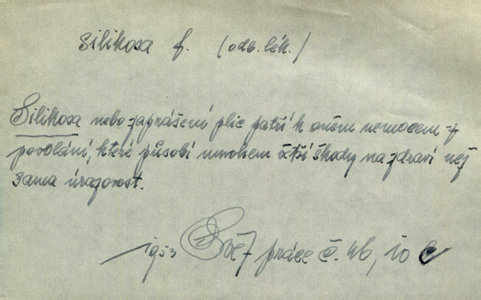 silikosa f. (odb. lék.)
Silikosa nebo zaprášení plic patří k oněm nemocem z
povolání, které působí mnohem větší škody na zdraví než
sama úrazovost.
1953 Svět práce č. 46, 10